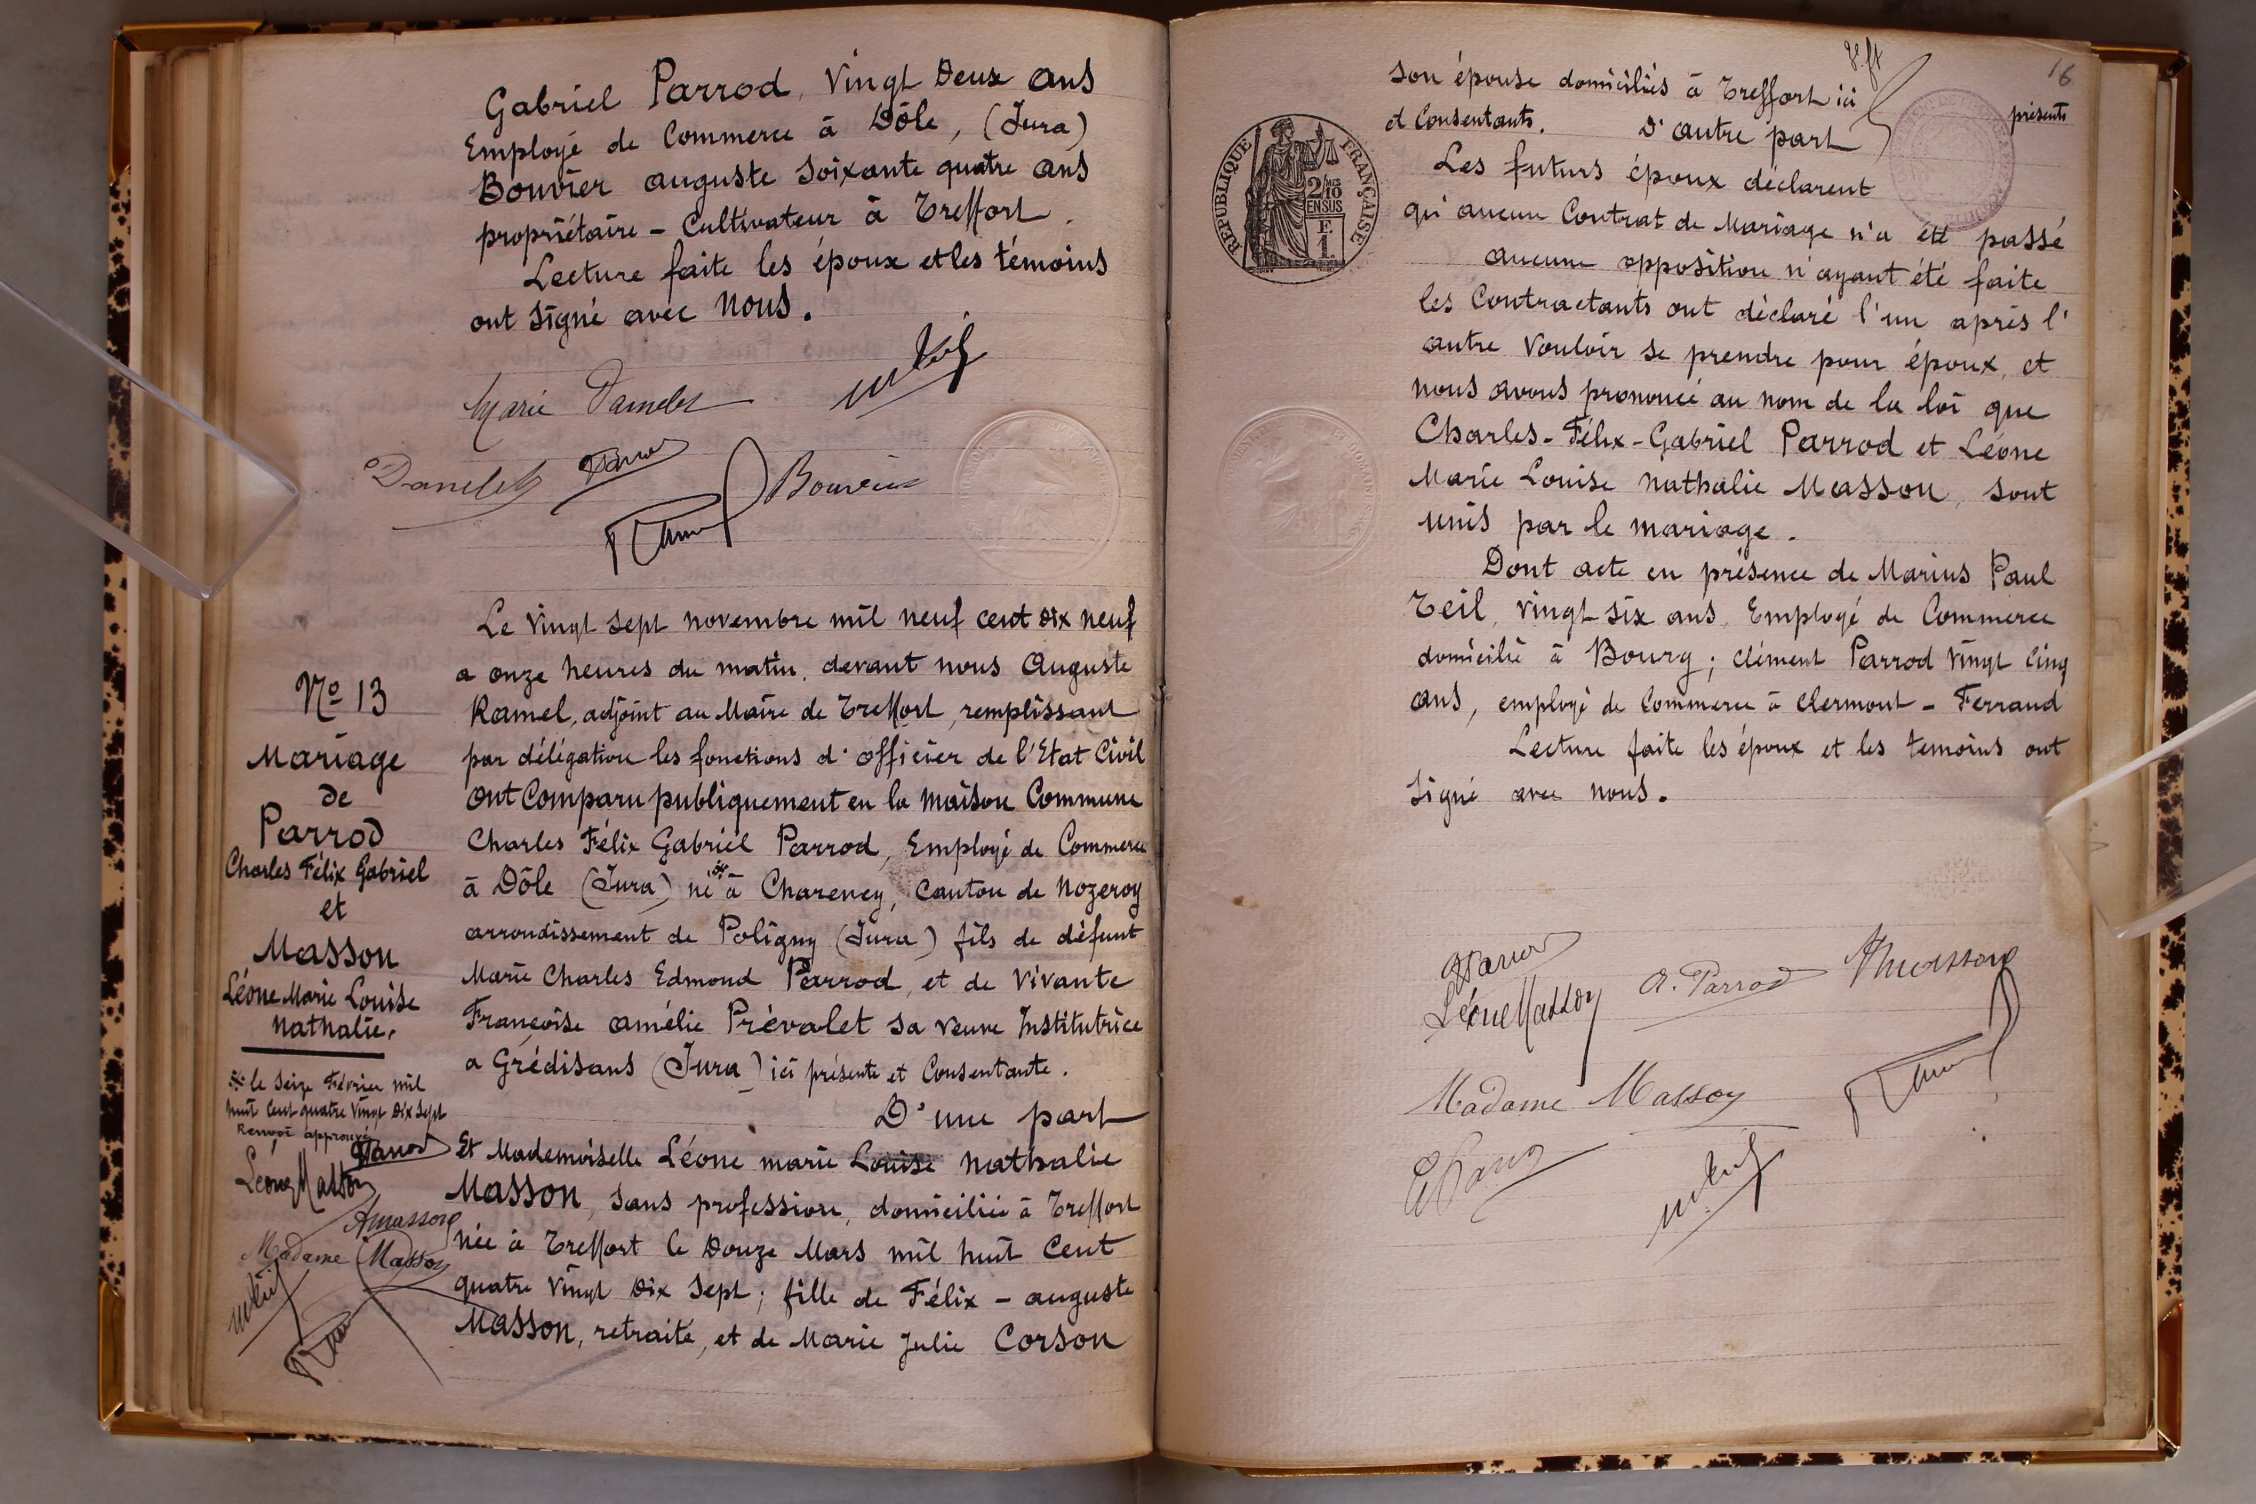 Gabriel Parrod, Vingt Deux ans
Employé de Commerce à Dôle, (Jura)
Bouvier auguste Soixante quatre ans
propriétaire - Cultivateur à Treffort.
Lecture faite les époux et les témoins
ont signé avec nous.
Marie Danelet
Danelet
Bouvier
Le Vingt sept novembre mil neuf cent dix neuf
a onze heures du matin, devant nous Auguste
Ramel, adjoint au Maire de Treffort, remplissant
par délégation les fonctions d'officier de l'Etat Civil
ont Comparu publiquement en la maison Commune
Charles Félix Gabriel Parrod, Employé de Commerce
à Dôle (Jura) né à Charency, Canton de Nozeroy
arrondissement de Poligny (Jura) fils de défunt
Marie Charles Edmond Parrod, et de Vivante
Françoise amélie Prévalet sa veuve Institutrice
a Grédisans (Jura) ici présente et Consentante.
D'une part
Et Mademoiselle Léone marie Louise Nathalie
Masson, sans profession, domiciliée à Treffort
née à Treffort le Douze Mars mil huit Cent
quatre Vingt Dix Sept; fille de Félix - auguste
Masson, retraité, et de Marie Julie Corson
No 13
Mariage
de
Parrod
Charles Félix Gabriel
et
Masson
Léone Marie Louise
Nathalie.
※ le Seize Février mil
huit Cent quatre Vingt Dix Sept
Renvoi approuvé
Parrod
Léone Masson
AMasson
Madame Masson
16
son épouse domiciliés à Treffort ici présents
et Consentants. D'autre part
Les futurs époux déclarent
qu'aucun Contrat de Mariage n'a été passé
aucune opposition n'ayant été faite
les Contractants ont déclaré l'un après l'
autre Vouloir se prendre pour époux, et
nous avons prononcé au nom de la loi que
Charles - Félix - Gabriel Parrod et Léone
Marie Louise Nathalie Masson, sont
unis par le mariage.
Dont acte en présence de Marius Paul
Teil, vingt six ans, Employé de Commerce
domicilié à Bourg; Clément Parrod Vingt Cinq
ans, employé de Commerce à Clermont - Ferrand
Lecture faite les époux et les temoins ont
signé avec nous.
RÉPUBLIQUE FRANÇAISE
2/10
EN SUS
F.
1.
Parrod
Léone Masson
A. Parrod
AMasson
Madame Masson